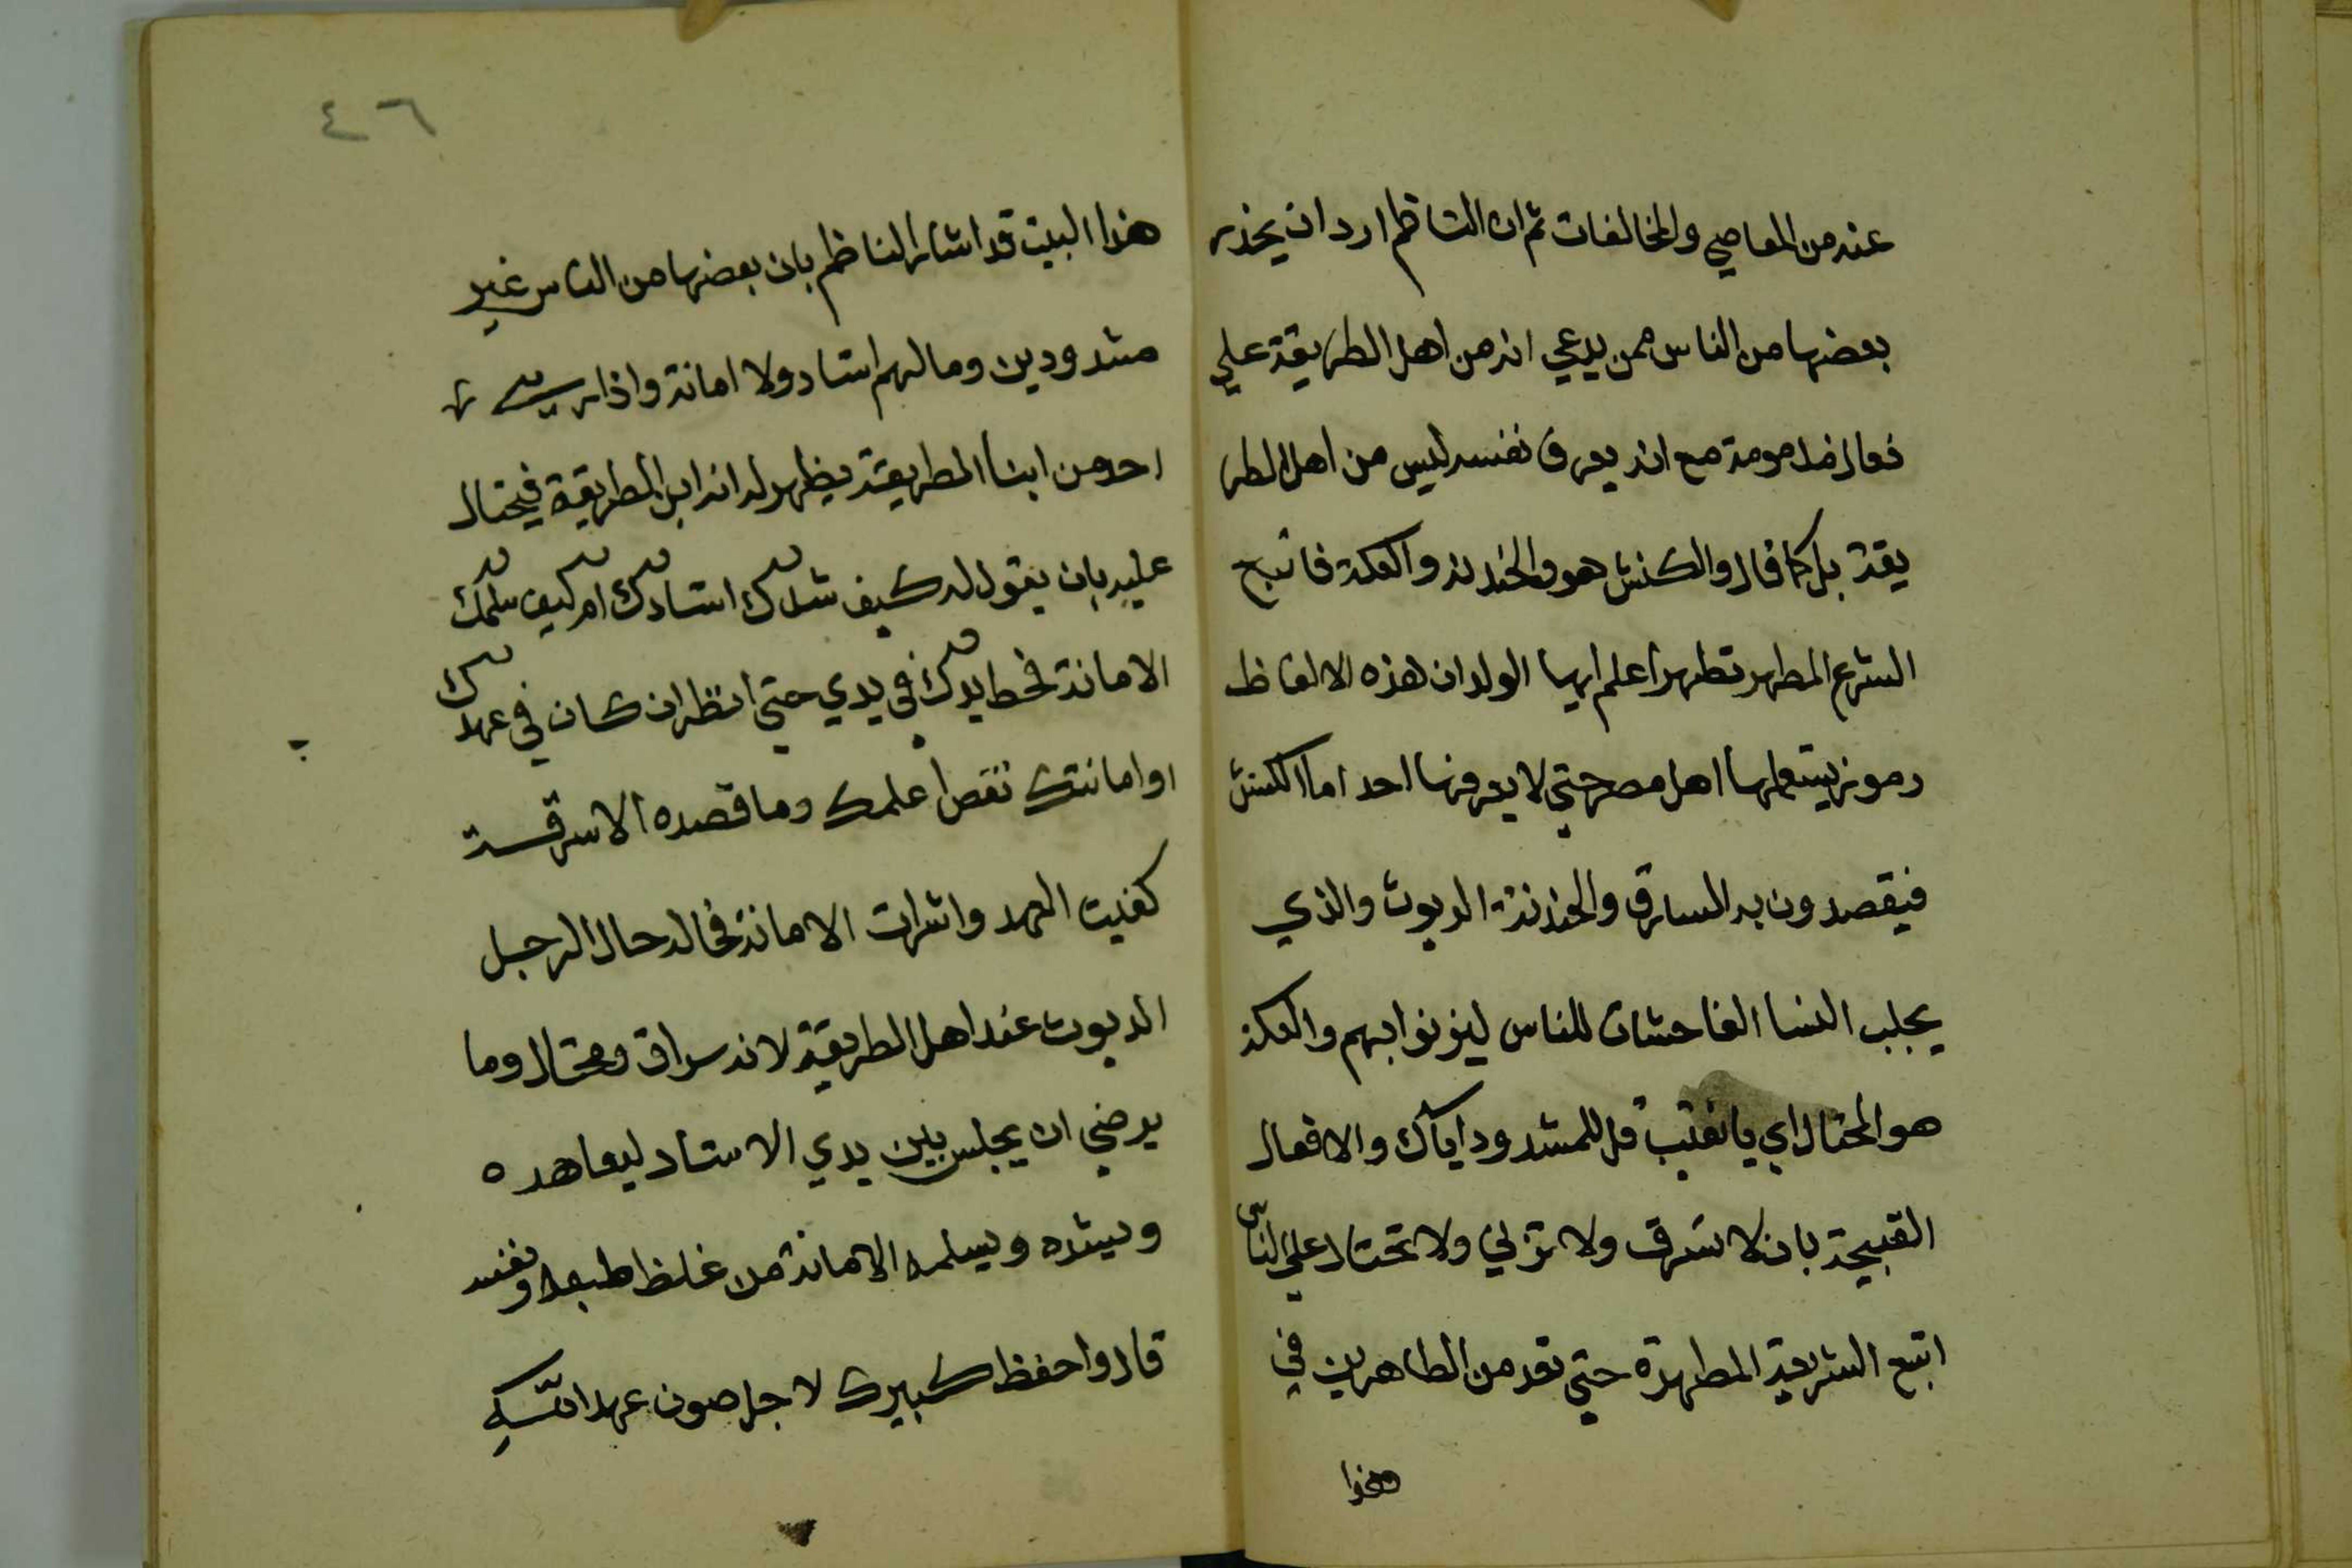 عنه من المعاصي والمخالفات ثم ان الناظم ارد ان يحذر
بعضها من الناس ممن يدعي انه من اهل الطريقة علي
فعال مذمومة مع انه يعرف نفسه ليس من اهل الطر
يقة بل كما قال والكنش هو والخندنه والعكة فاتبع
الشرع المطهر تطهر اعلم ايها الولد ان هذه الالفاظ
رموز يستعملها اهل مصر حتي لا يعرفها احد اما الكنش
فيقصدون به السارق والخندنة الديوث والذي
يجلب النسا الفاحشات للناس ليزنوا بهم والعكة
هو المحتال اي يا نقيب قل للمشدود اياك والافعال
القبيحة بان لا تسرق ولا تزني ولا تحتال علي الناس
اتبع الشريعة المطهرة حتي تعد من الطاهرين في
هذا
٤٦
هذا البيت قد اشار الناظم بان بعضها من الناس غير
مشدودين وما لهم استاد ولا امانة واذا
احد من ابنا الطريقة يظهر له انه ابن الطريقة فيحتال
عليه بان يقول له كيف شدك استادك ام كيف سلمك
الامانة فحط يدك في يدي حتي انظر ان كان في عهدك
او امانتك نقص اعلمك وما قصده الا سرقة
كفيت العهد واشرات الامانة فحاله حال الرجل
الديوث عند اهل الطريقة لانه سراق ومحتال وما
يرضي ان يجلس بين يدي الاستاد ليعاهده
ويشده ويسلمه الامانة من غلظ طبعه ونفسه
قال واحفظ كبيرك لاجل صون عهد